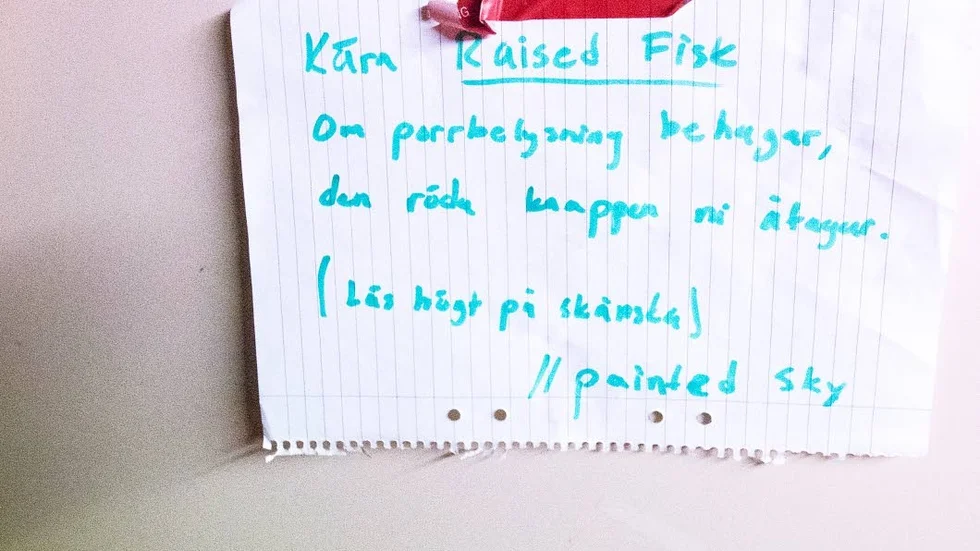 Kära Raised Fisk
Om porrbelysning behagar,
den röda knappen ni åtagar.
(Läs högt på skånska)
// painted sky